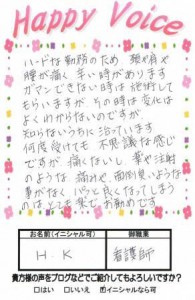 Happy Voice
ハードな勤務のため 頚や肩や
腰が痛く 辛い時があります
ガマンできない時は 施術して
もらいますが、その時は変化は
よくわからないのですが
知らないうちに治っています
何度受けても 不思議な感じ
ですが 痛くないし 薬や注射
のような 痛みや、面倒臭いような
事がなく パッと良くなってしまう
のは とても楽で お勧めです
お名前(イニシャル可)
御職業
H.K
看護師
貴方様の声をブログなどでご紹介してもよろしいですか?
□はい □いいえ ☑イニシャルなら可